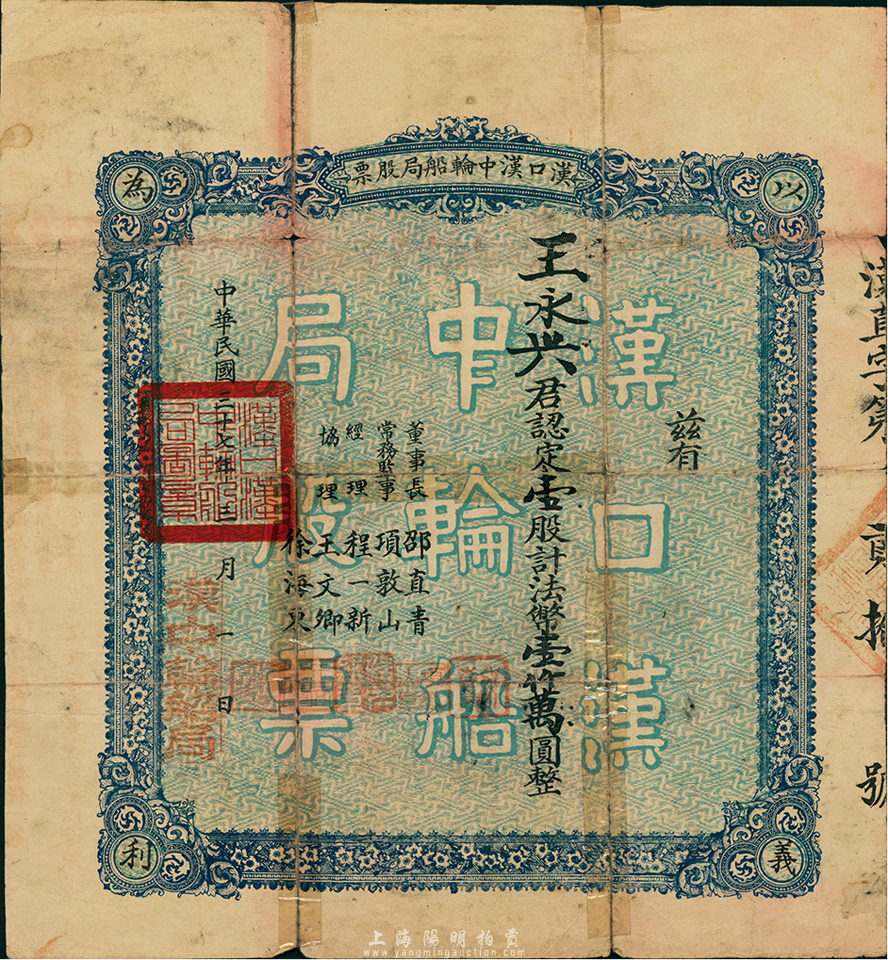 漢口漢中輪船局股票
以
義
為
利
漢口漢
中輪船
局股票
茲有
王永兴君認定壹股計法幣壹竹萬圓整
董事長 邵直青
常務監事 項敦山
經理 程一新
協理 王文卿
徐海東
中華民國三十七年三月一日
漢口漢
中輪船
局圖章
漢中輪船局
漢直字第
貳拾
號
上海陽明拍賣
www.yangmingauction.com